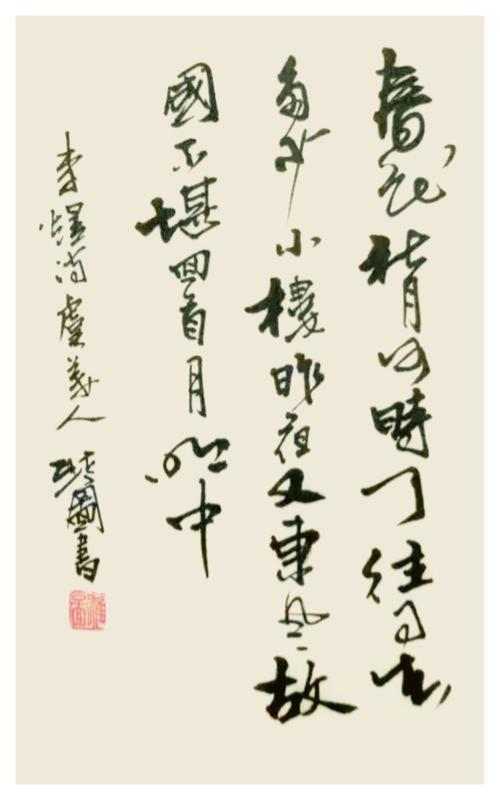 春花秋月何時了往事知
多少小樓昨夜又東風故
國不堪回首月明中
李煜詞虞美人圖書